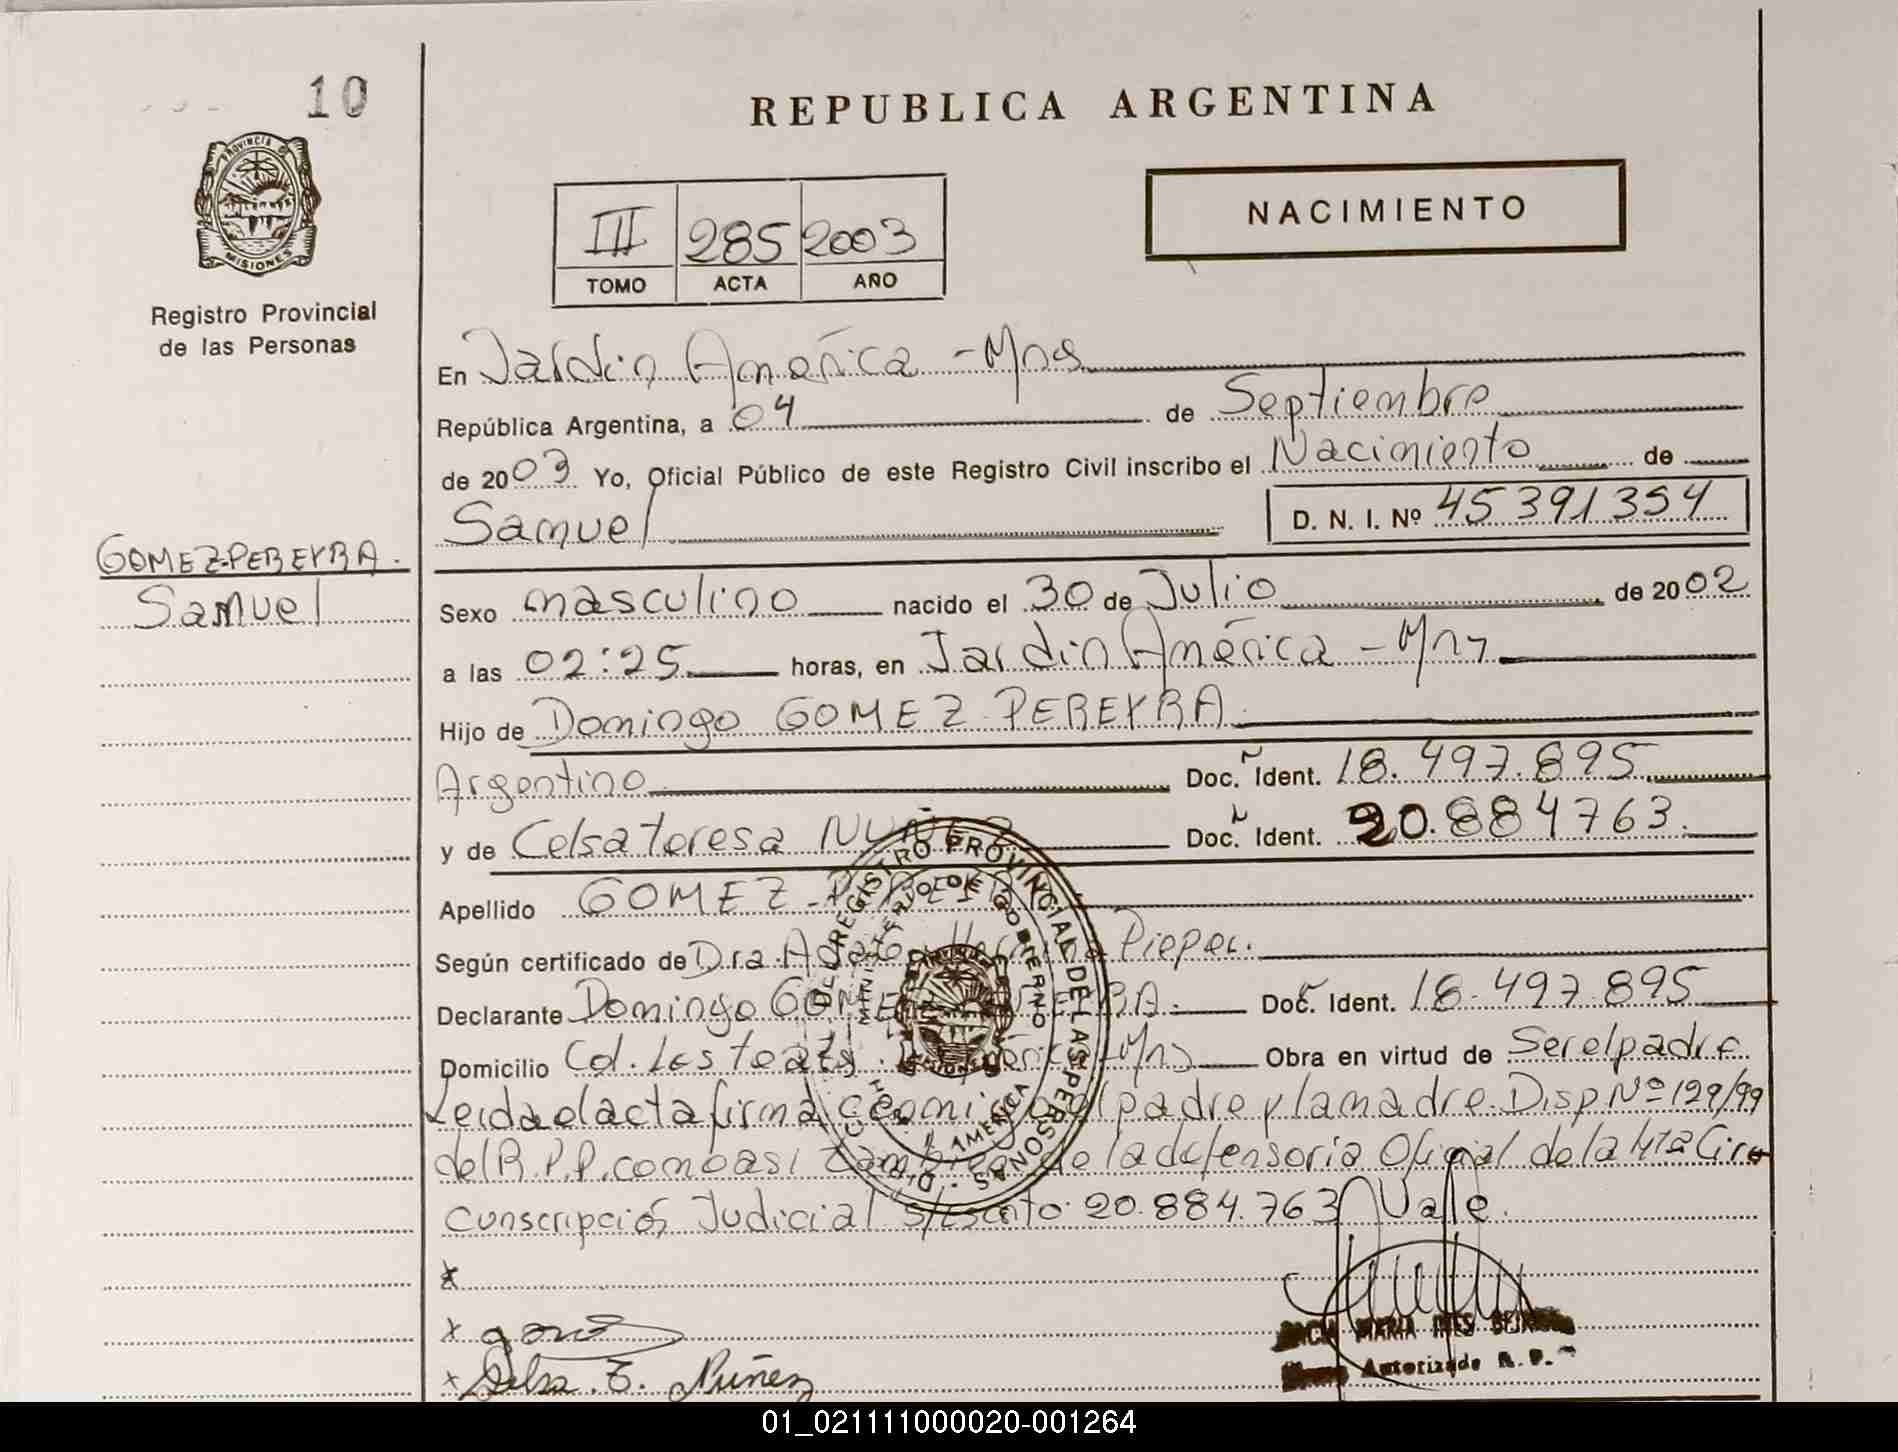 10
REPUBLICA ARGENTINA
PROVINCIA DE
MISIONES
NACIMIENTO
III 285 2003
TOMO ACTA AÑO
Registro Provincial
de las Personas
En Jardin América - Mns
República Argentina, a 04 de Septiembre
de 2003 Yo, Oficial Público de este Registro Civil inscribo el Nacimiento de
Samuel D. N. I. Nº 45 391 354
GOMEZ-PEREYRA.
Samuel
Sexo masculino nacido el 30 de Julio de 2002
a las 02:25 horas, en Jardin América - Mns
Hijo de Domingo GOMEZ PEREYRA
Argentino Doc. Ident. 18.497.895
y de Celsa teresa NUÑEZ Doc. Ident. 20.884763.
Apellido GOMEZ -
Según certificado de Dra. Pieper.
Declarante Domingo GOMEZ PEREYRA. Doc. Ident. 18.497.895
Domicilio Col. Los teales. América - Mns Obra en virtud de Ser el padre
Leida el acta firma conmigo el padre y la madre. Disp Nº 129/99
del R.P.P. como asi tambien de la defensoria Oficial de la 4ta Circ
cunscripción Judicial s/escrito: 20.884.763 Vale.
DIRECC. DEL REGISTRO PROVINCIAL DE LAS PERSONAS
MINISTERIO DE GOBIERNO
J. AMERICA
x
x gomez
x Celsa. T. Núñez
MARIA INES
Autorizado R. P.
01_021111000020-001264